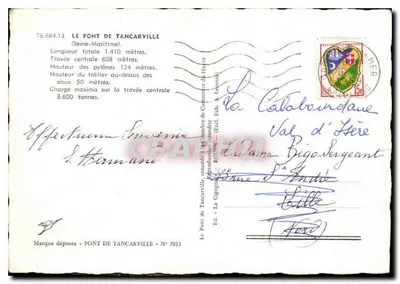 76.684.13 LE PONT DE TANCARVILLE
(Seine-Maritime).
Longueur totale 1.410 mètres.
Travée centrale 608 mètres.
Hauteur des pylônes 124 mètres.
Hauteur du tablier au-dessus des
eaux 50 mètres.
Charge maxima sur la travée centrale
3.600 tonnes.
Effectueux Souvenir
S. Hermani
Marque déposée - PONT DE TANCARVILLE - N° 7015
Le Pont de Tancarville, concédé à la Chambre de Commerce du Havre
Ed. - La Cigogne
MER
La Calabourdane
Val d'Isère
Madame Bigo-Sergeant
Rue St André
Lille
(Nord)